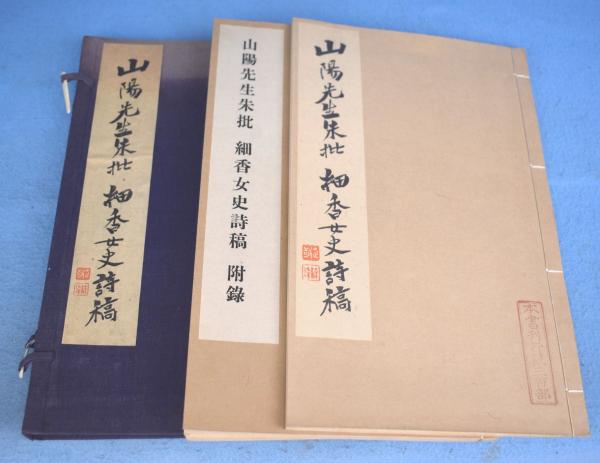 山陽先生朱批 細香女史詩稿
山陽先生朱批 細香女史詩稿 附錄
山陽先生朱批 細香女史詩稿